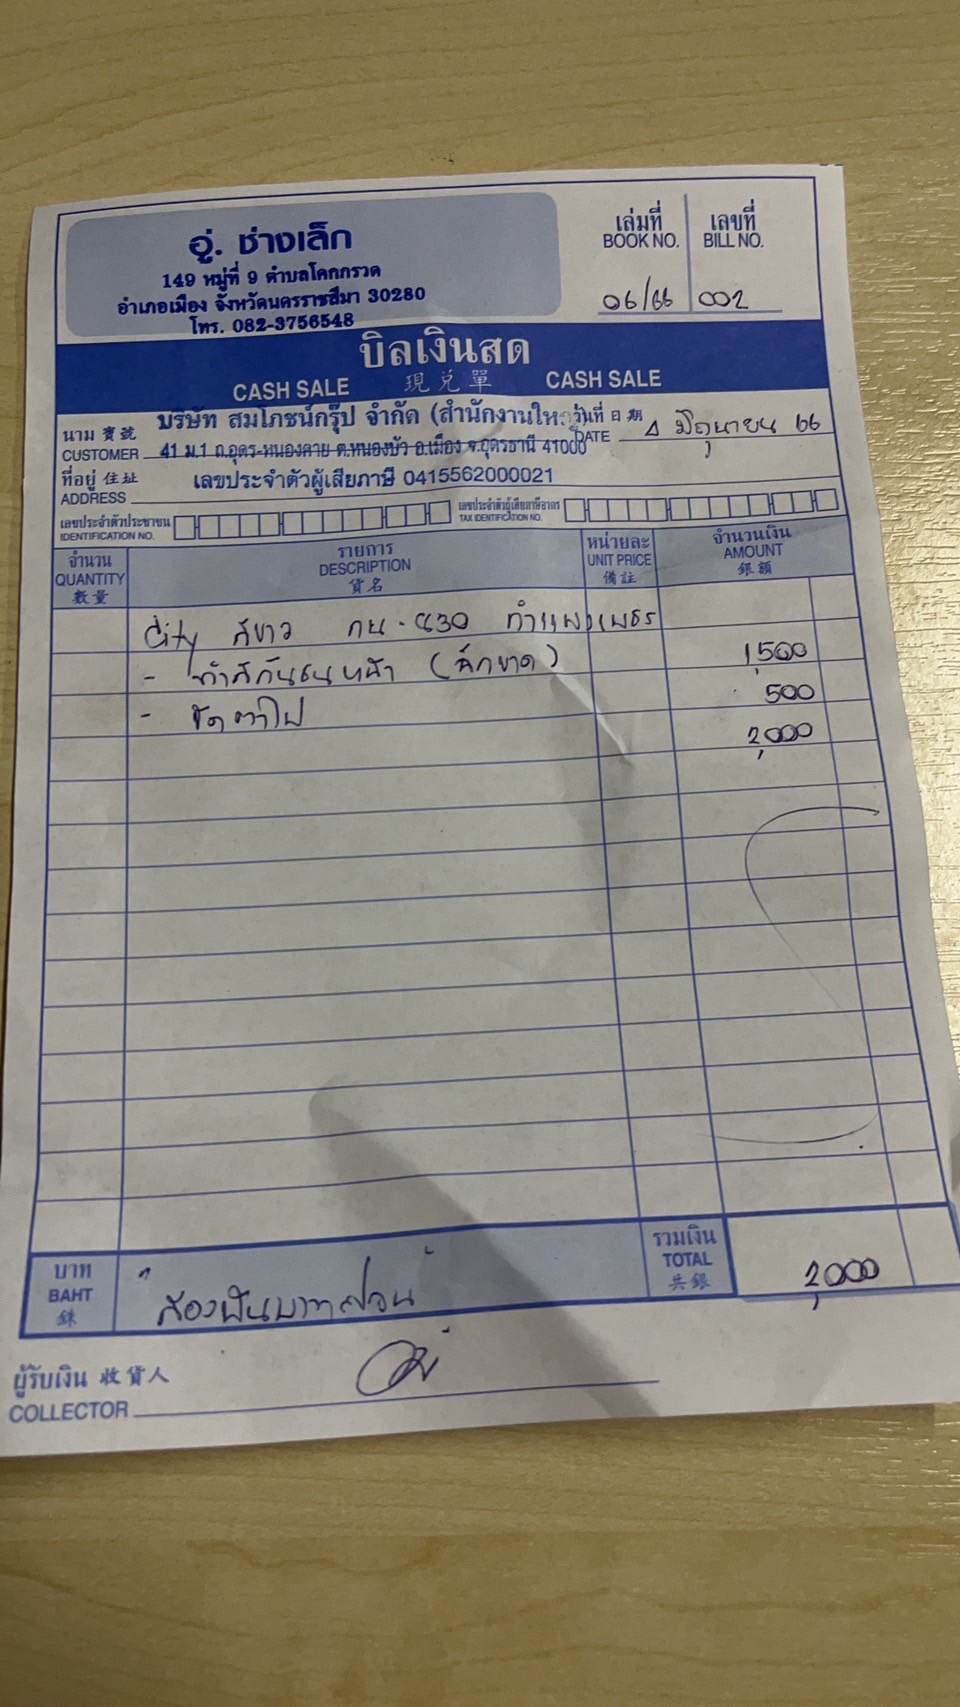 อู่. ช่างเล็ก
149 หมู่ที่ 9 ตำบลโคกกรวด
อำเภอเมือง จังหวัดนครราชสีมา 30280
โทร. 082-3756548
เล่มที่ เลขที่
BOOK NO. BILL NO.
06/66 002
บิลเงินสด
CASH SALE 現兌單 CASH SALE
นาม 寶號 บริษัท สมโภชน์กรุ๊ป จำกัด (สำนักงานใหญ่ วันที่ 日期
CUSTOMER 41 ม.1 ถ.อุดร-หนองคาย ต.หนองบัว อ.เมือง จ.อุดรธานี 41000 DATE 4 มิถุนายน 66
ที่อยู่ 住址 เลขประจำตัวผู้เสียภาษี 0415562000021
ADDRESS
เลขประจำตัวประชาชน เลขประจำตัวผู้เสียภาษีอากร
IDENTIFICATION NO. TAX IDENTIFICATION NO.
จำนวน รายการ หน่วยละ จำนวนเงิน
QUANTITY DESCRIPTION UNIT PRICE AMOUNT
數量 貨名 備註 銀額
City สีขาว กน-830 กำแพงเพชร
- ทำสีกันชนหน้า (ฉีกขาด) 1,500
- ขัดตาไฟ 500
2,000
บาท สองพันบาทถ้วน รวมเงิน
BAHT TOTAL 2,000
銖 共銀
ผู้รับเงิน 收貨人
COLLECTOR